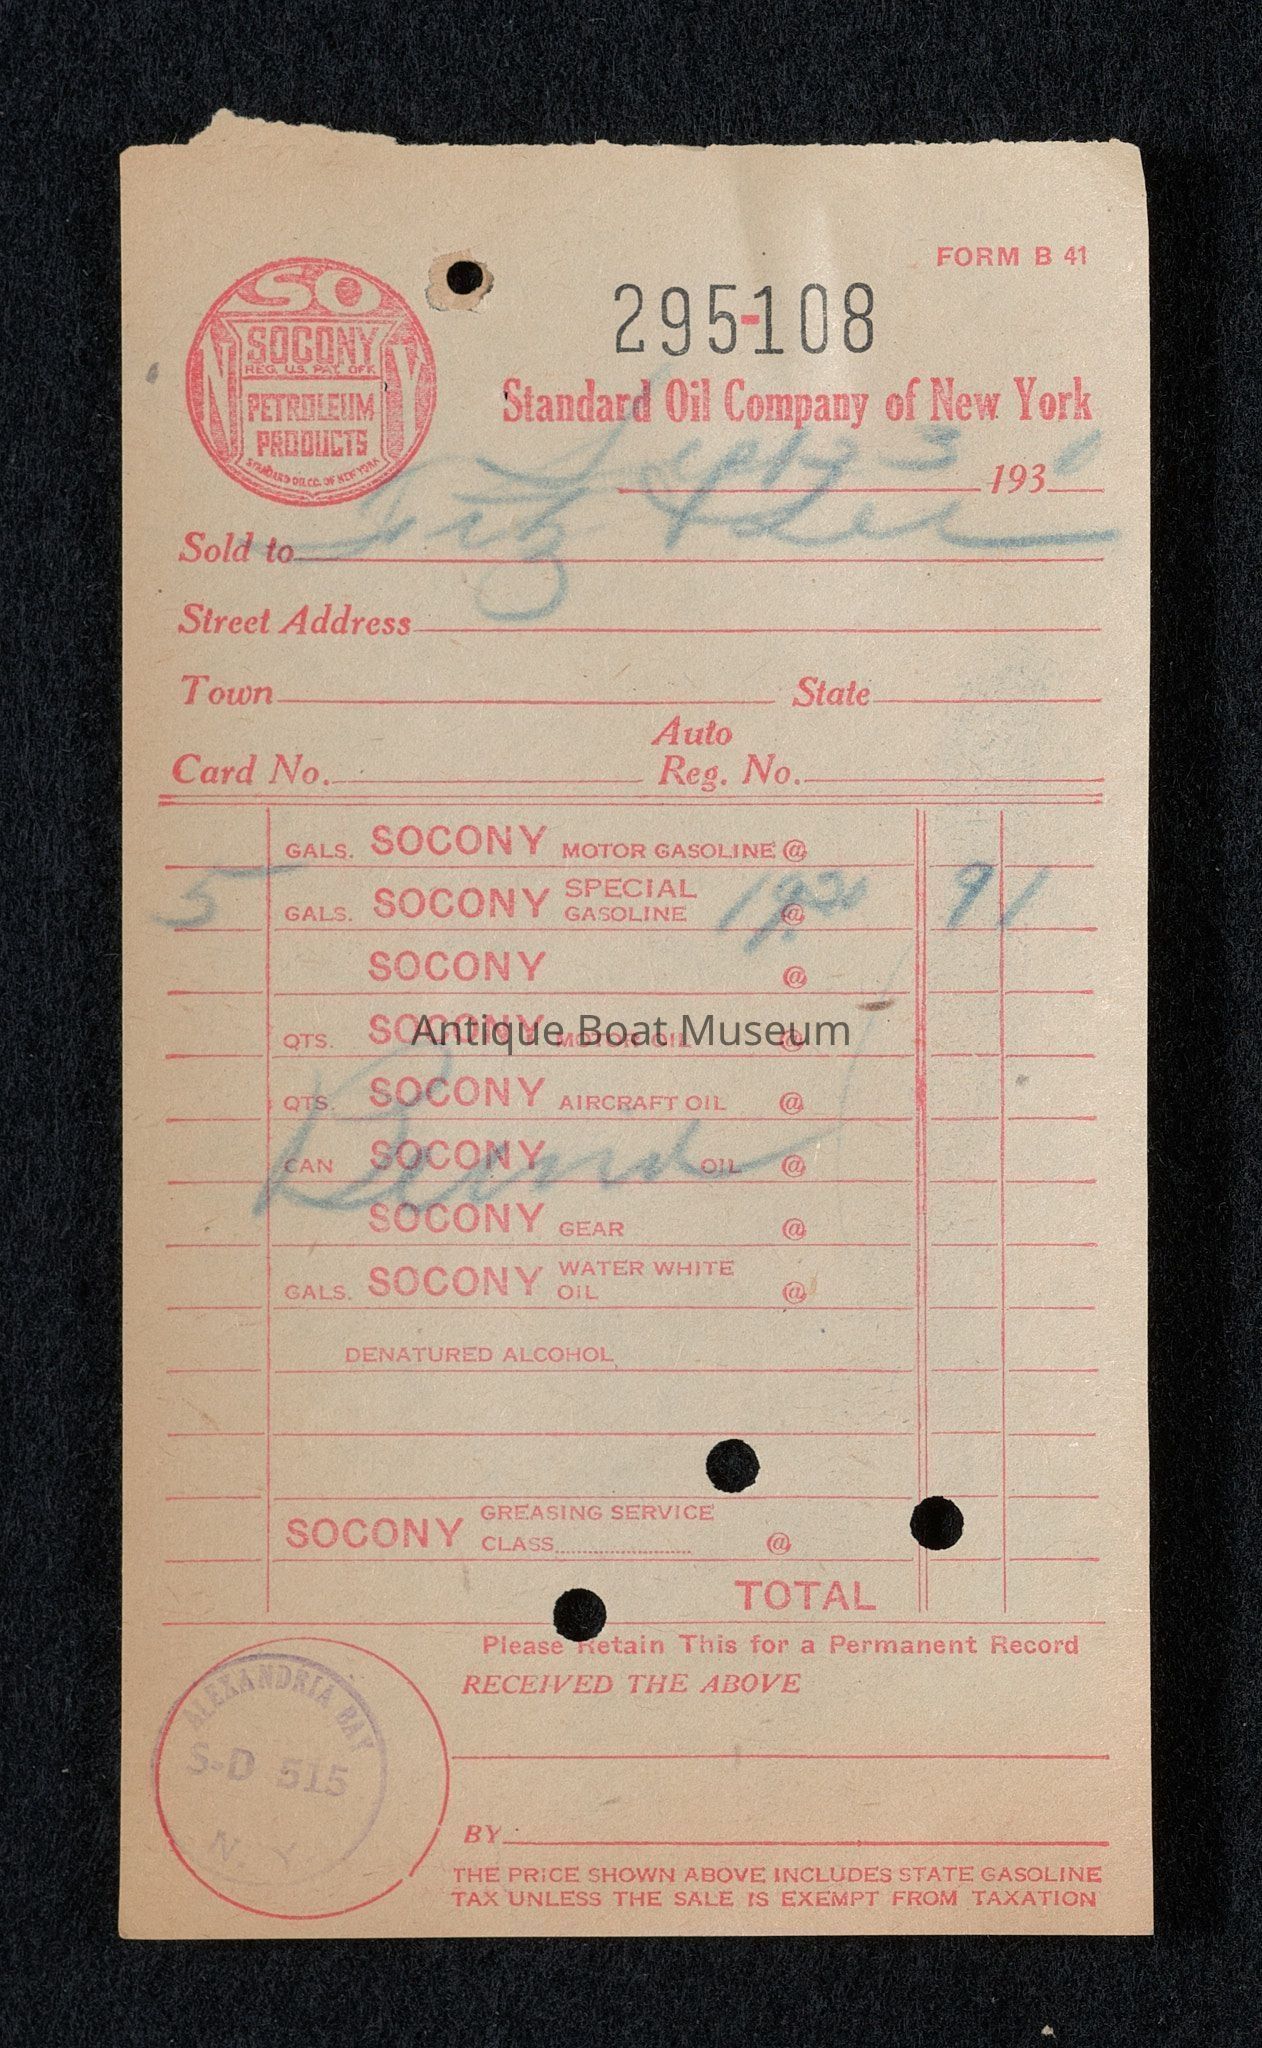 FORM B 41
295-108
SO
SOCONY
REG. U.S. PAT. OFF.
PETROLEUM
PRODUCTS
STANDARD OIL CO. OF NEW YORK
N Y
Standard Oil Company of New York
Sept 3 1930
Sold to
Street Address
Town State
Auto
Card No. Reg. No.
GALS. SOCONY MOTOR GASOLINE @
5 GALS. SOCONY SPECIAL GASOLINE @ 91
SOCONY @
QTS. SOCONY MOTOR OIL @
Antique Boat Museum
QTS. SOCONY AIRCRAFT OIL @
CAN SOCONY OIL @
SOCONY GEAR @
GALS. SOCONY WATER WHITE OIL @
DENATURED ALCOHOL
SOCONY GREASING SERVICE
CLASS @
TOTAL
Please Retain This for a Permanent Record
RECEIVED THE ABOVE
ALEXANDRIA BAY
S-D 515
N. Y.
BY
THE PRICE SHOWN ABOVE INCLUDES STATE GASOLINE
TAX UNLESS THE SALE IS EXEMPT FROM TAXATION